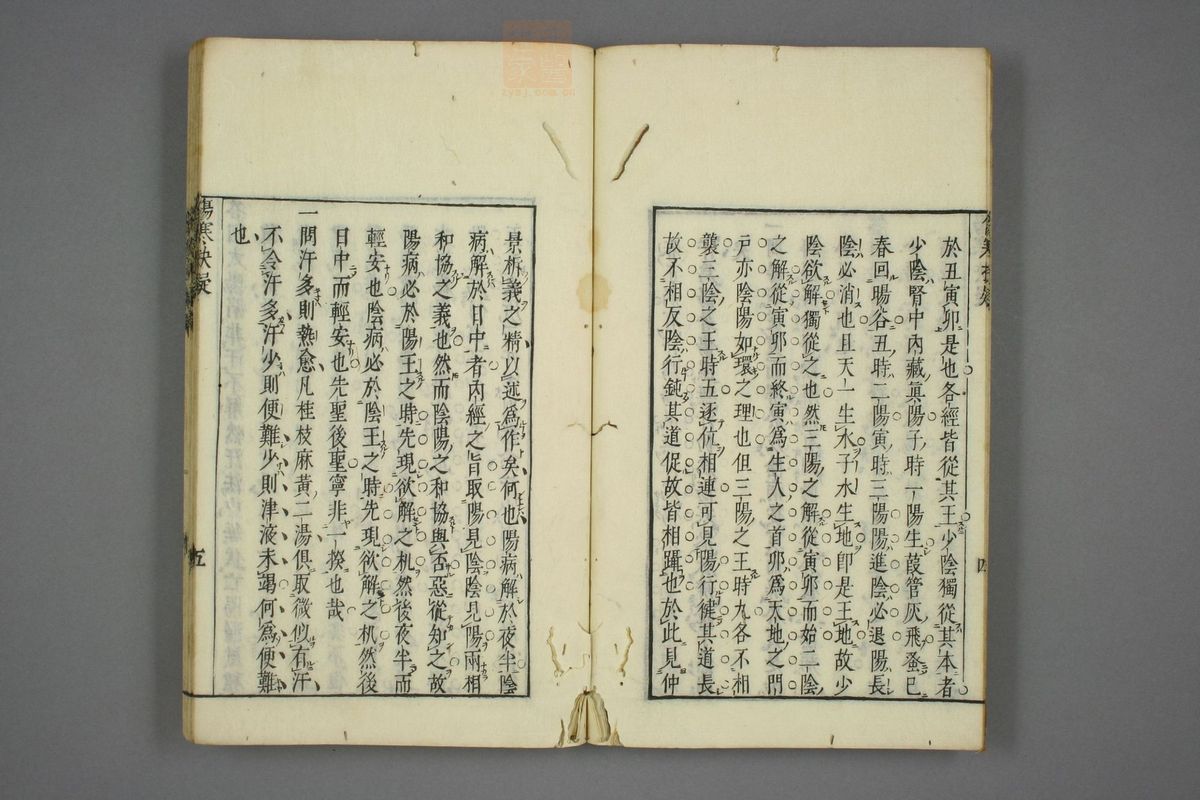 於丑寅卯是也各經皆從其王少陰獨從其本者
少陰腎中內藏眞陽子時一陽生葭管灰飛蚤已
春回暘谷丑時二陽寅時三陽陽進陰必退陽長
陰必消也且天一生水子水生地卽是王地故少
陰欲解獨從之也然三陽之解從寅卯而始三陰
之解從寅卯而終寅爲生人之首卯爲天地之門
戸亦陰陽如環之理也但三陽之王時九各不相
襲三陰之王時五逐位相連可見陽行健其道長
故不相及陰行鈍其道促故皆相躡也於此見仲
景析義之精以述爲作矣何也陽病解於夜半陰
病解於日中者內經之旨取陽見陰陰見陽兩相
和協之義也然而陰陽之和協與否惡從知之故
陽病必於陽王之時先現欲解之机然後夜半而
輕安也陰病必於陰王之時先現欲解之机然後
日中而輕安也先聖後聖寧非一揆也哉
一問汗多則熱愈凡桂枝麻黃二湯俱取微似有汗
不令汗多汗少則便難少則津液未竭何爲便難
也
傷寒
五
四
zysj.com.cn